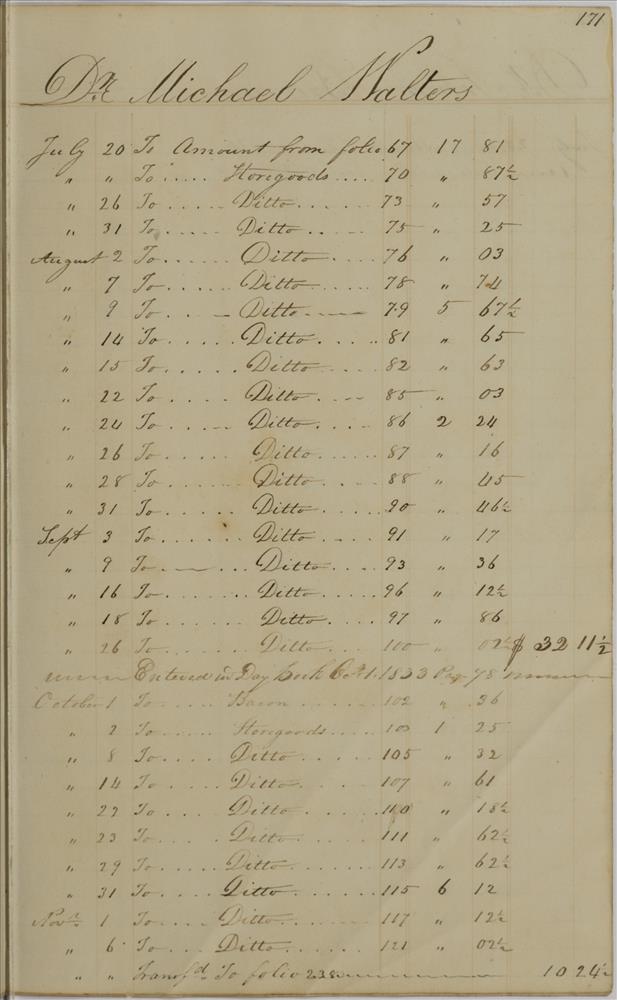 171
Dr. Michael Walters
July 20 To Amount from folio 67 17 81
" " To ..... Storegoods .... 70 " 87½
" 26 To ..... Ditto ..... 73 " 57
" 31 To ..... Ditto ..... 75 " 25
August 2 To ..... Ditto .... 76 " 03
" 7 To ..... Ditto .... 78 " 74
" 9 To ..... Ditto .... 79 5 67½
" 14 To ..... Ditto ..... 81 " 65
" 15 To ..... Ditto .... 82 " 63
" 22 To ..... Ditto .... 85 " 03
" 24 To ..... Ditto .... 86 2 24
" 26 To ..... Ditto ..... 87 " 16
" 28 To ..... Ditto .... 88 " 45
" 31 To ..... Ditto .... 90 " 46½
Sept 3 To ..... Ditto .... 91 " 17
" 9 To ..... Ditto .... 93 " 36
" 16 To ..... Ditto .... 96 " 12½
" 18 To ..... Ditto .... 97 " 86
" 26 To ..... Ditto .... 100 " 02½ $ 32 11½
Entered in Day book Oct 1. 1833 Page 78
October 1 To ..... Bacon ..... 102 " 36
" 2 To ..... Storegoods .... 103 1 25
" 8 To .... Ditto ..... 105 " 32
" 14 To .... Ditto ..... 107 " 61
" 22 To .... Ditto ..... 110 " 18½
" 23 To .... Ditto ..... 111 " 62½
" 29 To .... Ditto ..... 113 " 62½
" 31 To .... Ditto ..... 115 6 12
Novr. 1 To .... Ditto ..... 117 " 12½
" 6 To .... Ditto ..... 121 " 02½
" " Transfd. To folio 238 10 24½